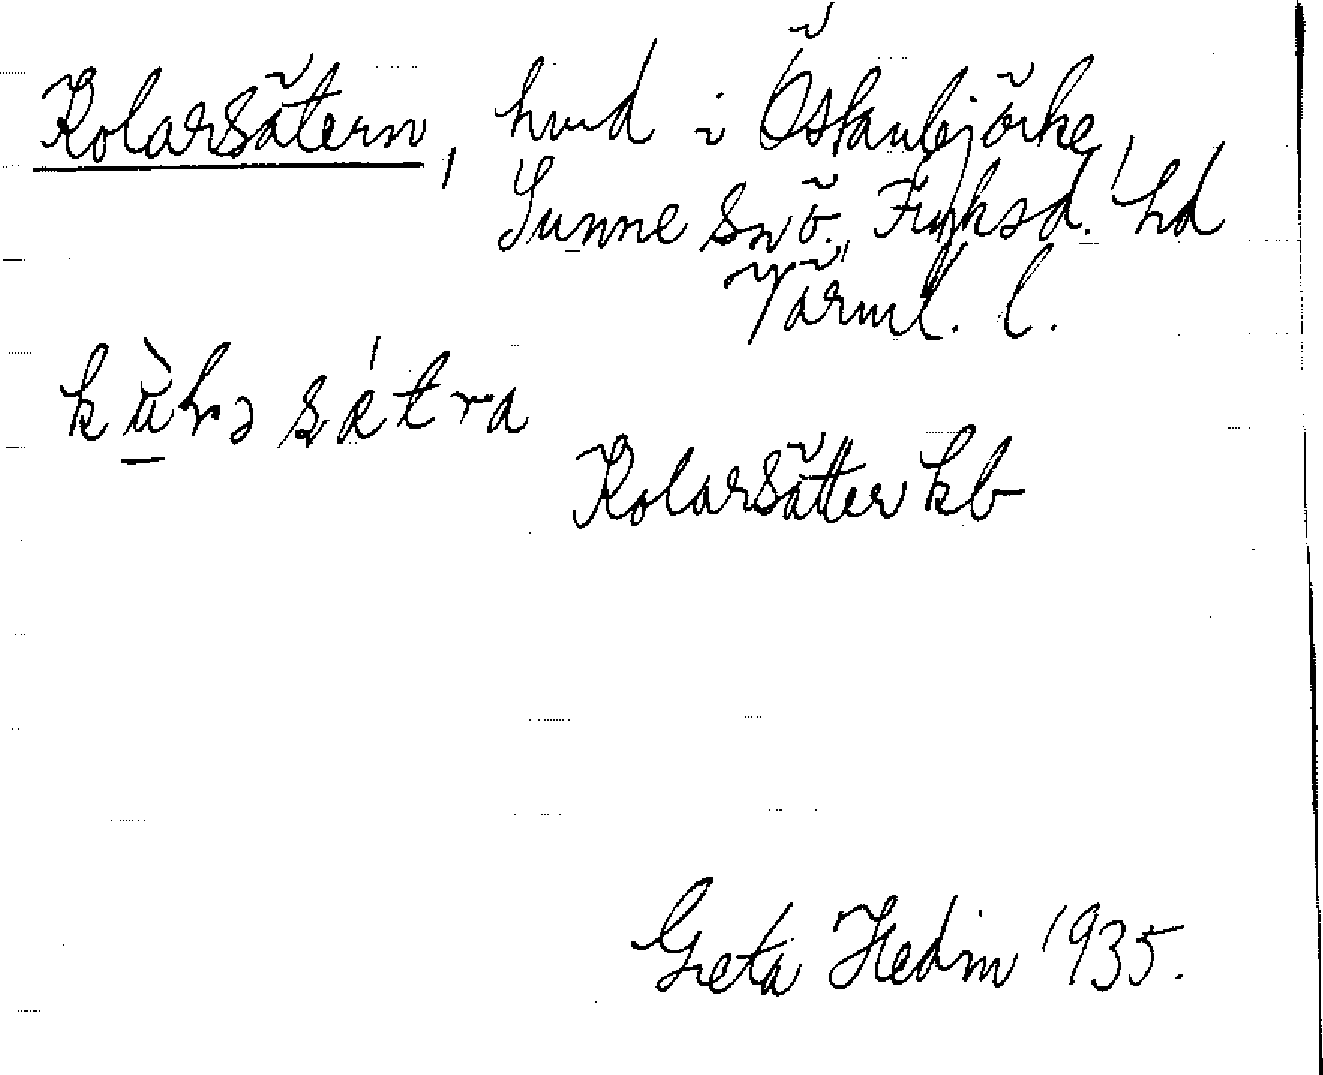 Kolarsätern, hmd i Östanbjörke,
Sunne sn ö. Fryksd. hd
Värml. l.
sätra
Kolarsätter kb
Greta Hedin 1935.